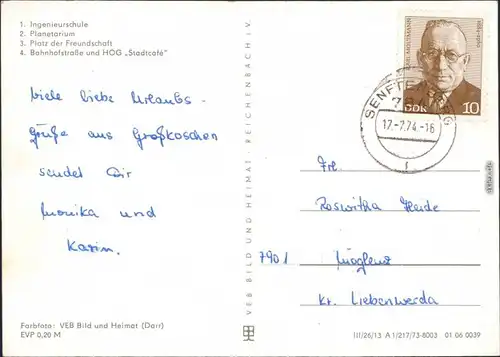 1. Ingenieurschule
2. Planetarium
3. Platz der Freundschaft
4. Bahnhofstraße und HOG „Stadtcafé"
Viele liebe Urlaubs-
grüße aus Großkoschen
sendet Dir
Monika und
Karin.
Farbfotos: VEB Bild und Heimat (Darr)
EVP 0,20 M
VEB BILD UND HEIMAT REICHENBACH i. V.
DDR 10
SENFTENBERG
17.-7.74.-16
Frl.
Roswitha Heide
7901 Möglenz
Kr. Liebenwerda
III/26/13 A 1/217/73-8003 01 06 0039